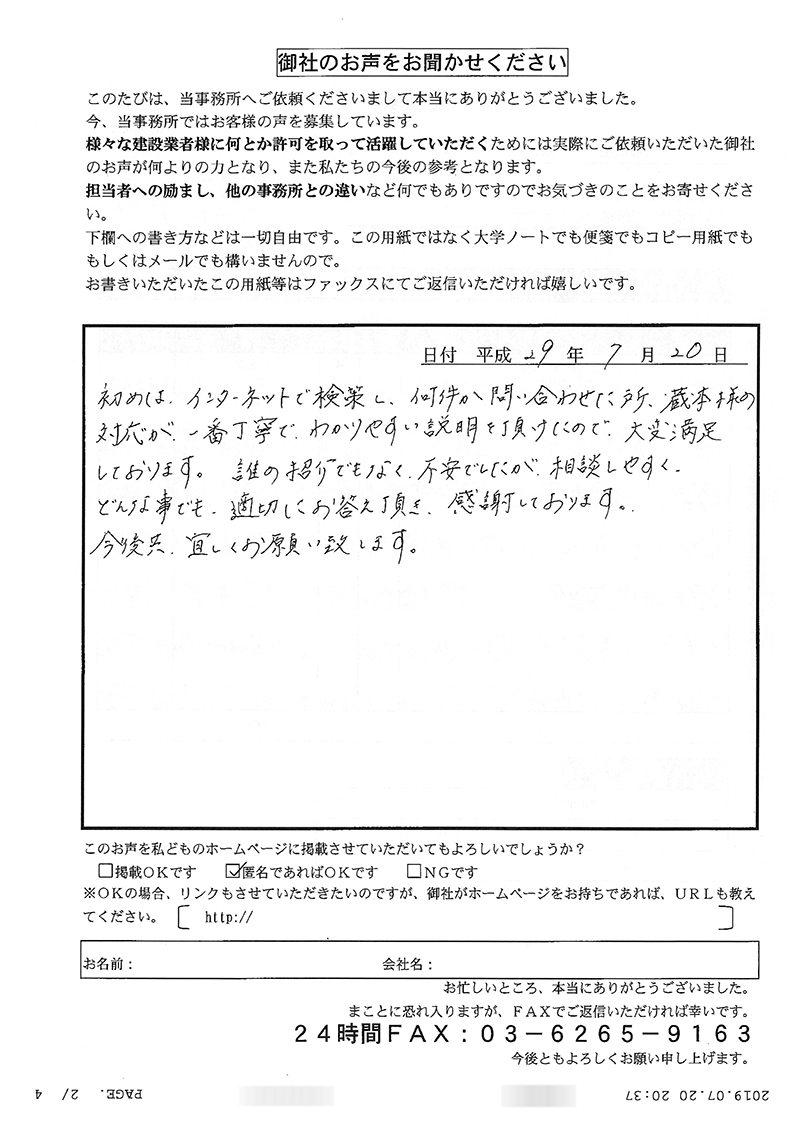 御社のお声をお聞かせください
このたびは、当事務所へご依頼くださいまして本当にありがとうございました。
今、当事務所ではお客様の声を募集しています。
様々な建設業者様に何とか許可を取って活躍していただくためには実際にご依頼いただいた御社
のお声が何よりの力となり、また私たちの今後の参考となります。
担当者への励まし、他の事務所との違いなど何でもありですのでお気づきのことをお寄せくださ
い。
下欄への書き方などは一切自由です。この用紙ではなく大学ノートでも便箋でもコピー用紙でも
もしくはメールでも構いませんので。
お書きいただいたこの用紙等はファックスにてご返信いただければ嬉しいです。
日付 平成 29 年 7 月 20 日
初めは、インターネットで検策し、何件か問い合わせた所、蔵本様の
対応が、一番丁寧で、わかりやすい説明を頂けたので、大変満足
しております。 誰の紹介でもなく、不安でしたが、相談しやすく、
どんな事でも、適切にお答え頂き、感謝しております。
今後共、宜しくお願い致します。
このお声を私どものホームページに掲載させていただいてもよろしいでしょうか？
□掲載ＯＫです ☑匿名であればＯＫです □ＮＧです
※ＯＫの場合、リンクもさせていただきたいのですが、御社がホームページをお持ちであれば、ＵＲＬも教え
てください。 [ http:// ]
お名前： 会社名：
お忙しいところ、本当にありがとうございました。
まことに恐れ入りますが、ＦＡＸでご返信いただければ幸いです。
２４時間ＦＡＸ：０３－６２６５－９１６３
今後ともよろしくお願い申し上げます。
2019.07.20 20:37 PAGE. 2/ 4